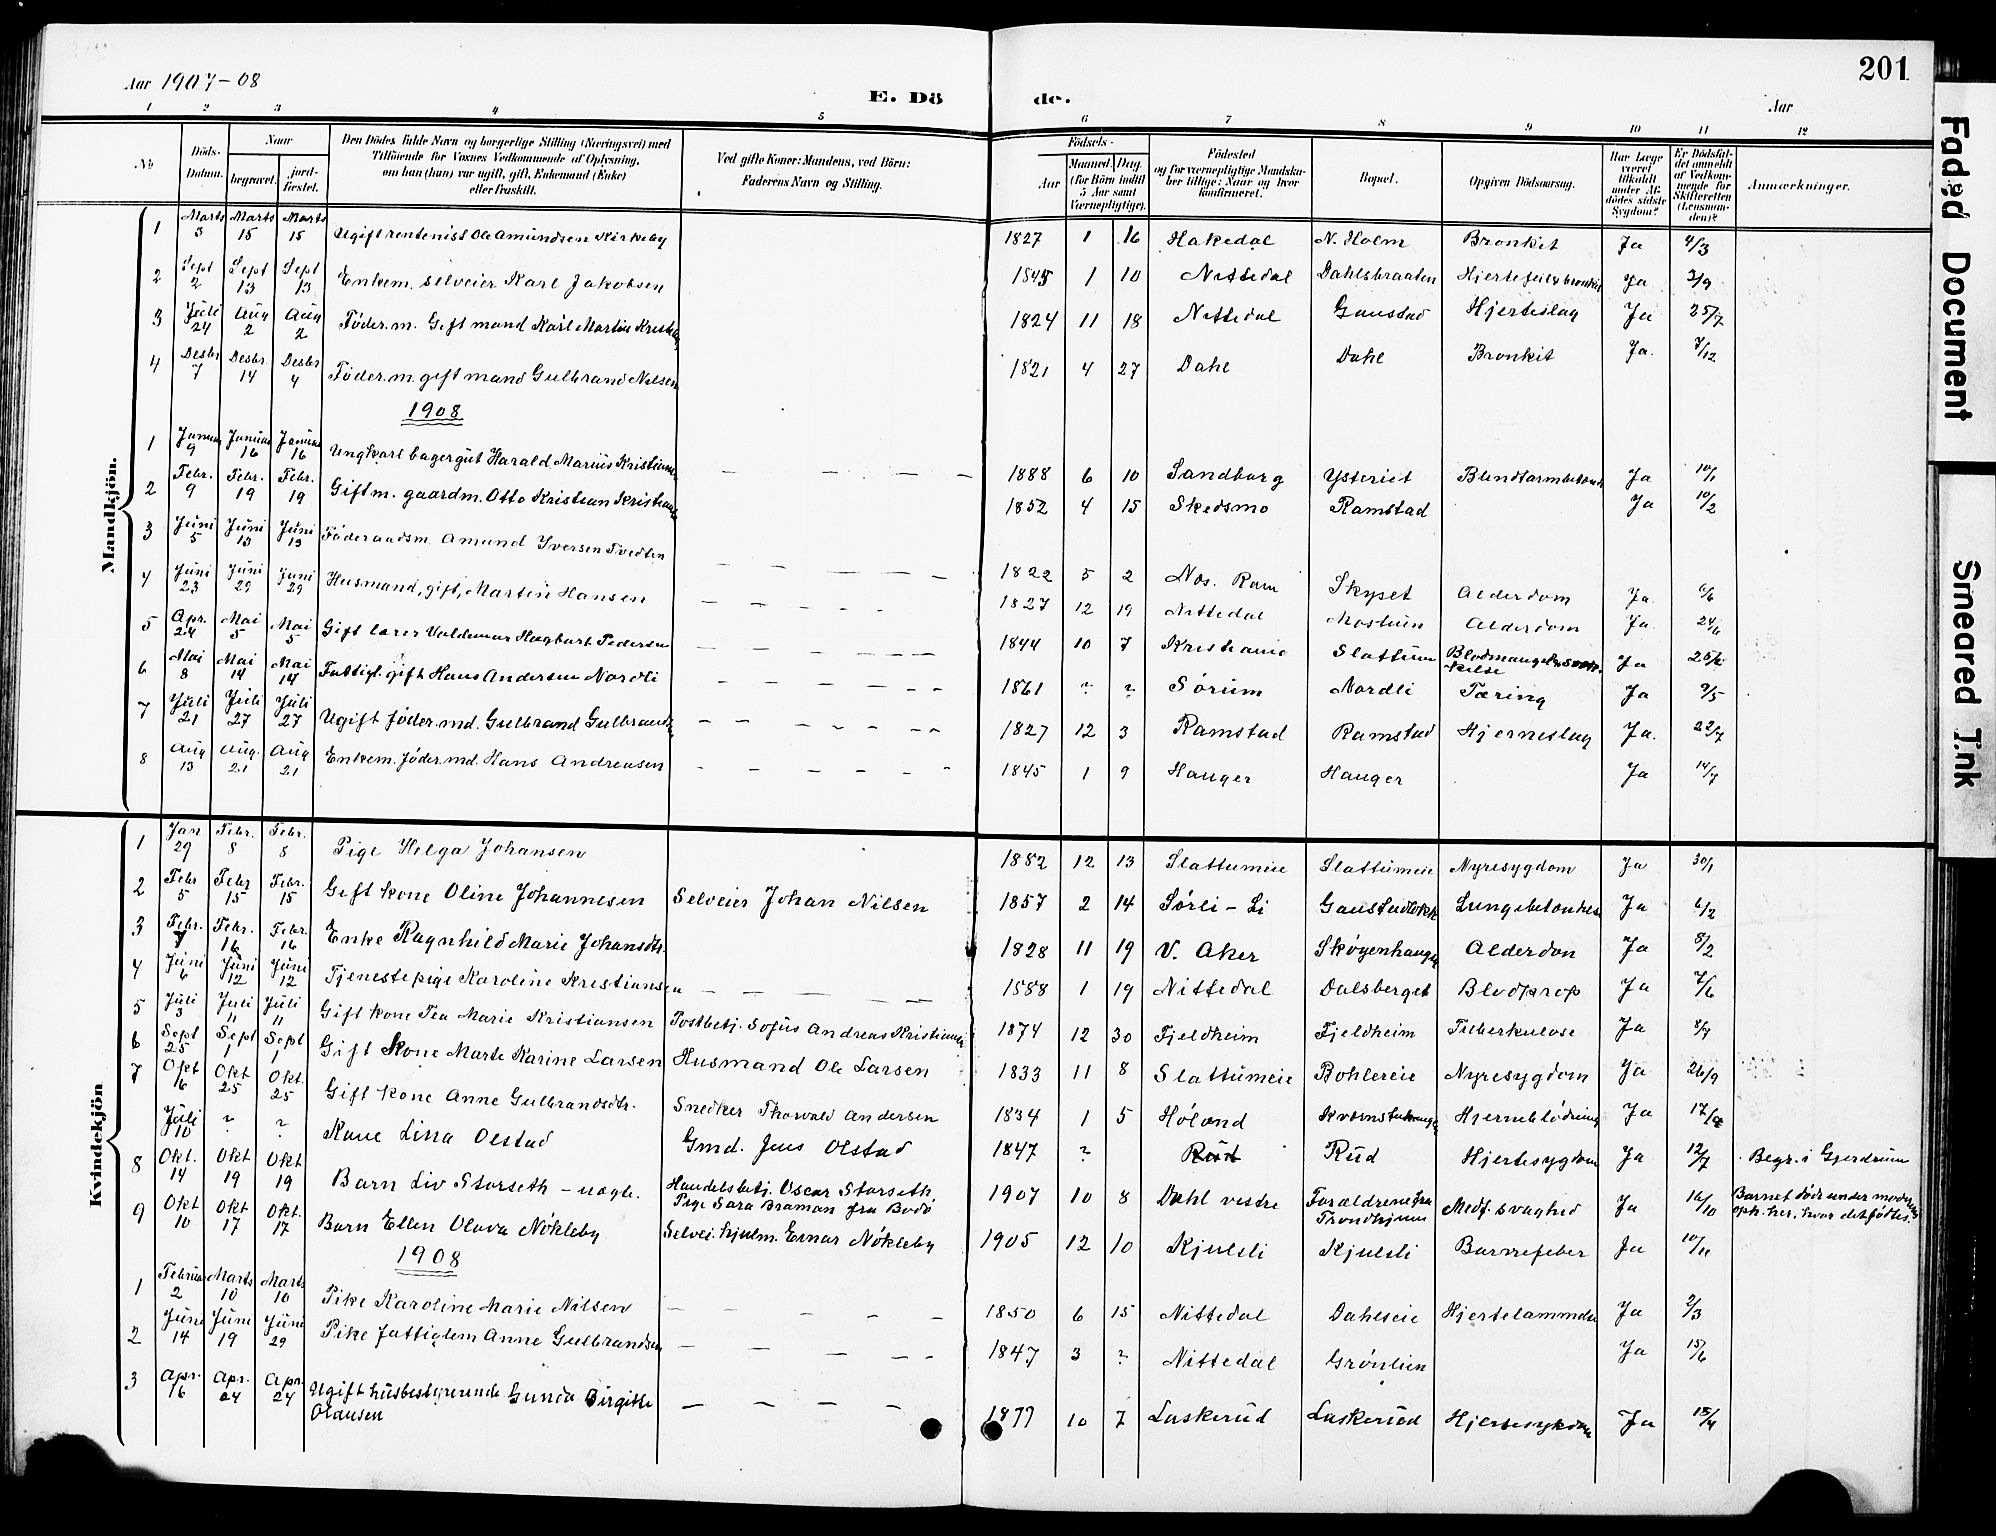 Aar 1907-08
E. Dö de.
201
Aar
1 2 3 4 5 6 7 8 9 10 11 12
No
Döds-
Datum.
Naar
begravet.
jord-
fæstet.
Den Dödes fulde Navn og borgerlige Stilling (Næringsvei) med
Tilföiende for Voxnes Vedkommende af Oplysning,
om han (hun) var ugift, gift, Enkemand (Enke)
eller fraskilt.
Ved gifte Koner: Mandens, ved Börn:
Faderens Navn og Stilling.
Födsels-
Aar
Maaned. Dag.
(for Börn indtil
5 Aar samt
Værnepligtige).
Födested
og for værnepligtige Mandska-
ber tillige: Naar og hvor
konfirmeret.
Bopæl.
Opgiven Dödsaarsag.
Har Læge
været
tilkaldt
under Af-
dödes sidste
Sygdom?
Er Dödsfal-
det anmeldt
af Vedkom-
mende for
Skifteretten
(Lensman-
den)?
Anmærkninger.
Mandkjön.
1 Marts 3 Marts 15 Marts 15 Ugift rentenist Ole Amundsen Kirkeby 1827 1 16 Hakedal N. Holm Bronkit Ja 4/3
2 Sept 2 Sept 13 Sept 13 Enkem. selveier Karl Jakobsen 1845 1 10 Nittedal Dahlsbraaten Hjertefeil & bronkit Ja 3/9
3 Juli 24 Aug 2 Aug 2 Föder.m. Gift mand Karl Martin 1824 11 18 Nittedal Gaustad Hjerteslag Ja 25/7
4 Desbr 7 Desbr. 14 Desbr 4 Föder.m. gift mand Gulbrand Nilsen 1821 4 27 Dahl Dahl Bronkit Ja. 7/12
1908
1 Januar 9 Januar 16 Januar 16 Ungkarl bagergut Harald Marius Kristiansen 1888 6 10 Sandborg Ysteriet Ja 10/1
2 Febr. 9 Febr. 19 Febr. 19 Gift m. gaardm. Otto Kristian 1852 4 15 Skedsmo Ramstad Ja 10/2
3 Juni 5 Juni 13 Juni 13 Föderaadsm. Amund Iversen Tvedten 1822 5 2 Nos. Ram Skyset Alderdom Ja. 6/6
4 Juni 23 Juni 29 Juni 29 Husmand, gift, Martin Hansen 1827 12 19 Nittedal Alderdom Ja. 24/6
5 Apr. 24 Mai 5 Mai 5 Gift lærer Valdemar Hagbart Pedersen 1844 10 7 Kristiania Slattum Ja
6 Mai 8 Mai 14 Mai 14 Fattigl. gift Hans Andersen Nordli 1861 ? ? Sörum Nordli Tæring Ja 9/5
7 Juli 21 Juli 27 Juli 27 Ugift föder.md. Gulbrand 1827 12 3 Ramstad Ramstad Hjerneslag Ja. 22/7
8 Aug 13 Aug. 21 Aug 21 Enkem. föder.md. Hans Andreasen 1845 1 9 Hauger Hauger Ja 14/7
Kvindekjön
1 Jan 29 Febr. 8 Febr. 8 Pige Helga Johansen 1882 12 13 Slattumeie Slattumeie Nyresygdom Ja 30/1
2 Febr 5 Febr 15 Febr. 15 Gift kone Oline Johannesen Selveier Johan Nilsen 1857 2 14 Sörli - Li Ja 6/2
3 Febr. 7 Febr. 16 Febr. 16 Enke Ragnhild Marie Johansdtr. 1828 11 19 V. Aker Skøyenhaugen Alderdom Ja 8/2
4 Juni 6 Juni 12 Juni 12 Tjenestepige Karoline Kristiansen 1888 1 19 Nittedal Dalsberget Blodprop Ja 7/6
5 Juli 3 Juli 11 Juli 11 Gift kone Tea Marie Kristiansen Postbetj. Sofus Andreas Kristiansen 1874 12 30 Fjeldheim Fjeldheim Tuberkulose Ja
6 Sept 25 Sept 1 Sept 1 Gift kone Marte Karine Larsen Husmand Ole Larsen 1833 11 8 Slattumeie Bohlereie Nyresygdom Ja 26/9
7 Okt 6 Okt 25 Okt. 25 Gift kone Anne Gulbrandsdtr. Snedker Thorvald Andersen 1834 1 5 Höland Hjerneblödning Ja
Juli 10 ? ? Kone Lina Olstad Gmd. Jens Olstad 1847 ? Rud Rud Hjertesygdom Ja 12/7 Begr. i Gjerdrum
8 Okt. 14 Okt 19 Okt 19 Barn Liv Storseth - uægte. Handelsbetj. Oscar Storseth, 1907 10 8 Dahl vestre Forældrene fra Medf. svaghed Ja 16/10 Barnet döde under moderens
Pige Sara Braman fra Bodö Trondhjem oph. her, hvor det födtes.
9 Okt 10 Okt 17 Okt. 17 Barn Ellen Olava Nökleby Selvei. hjulm. Ernar Nökleby 1905 12 10 Kjulsli Kjulsli Barnefeber Ja 10/11
1908
1 Februar 2 Marts 10 Marts 10 Pike Karoline Marie Nilsen 1850 6 15 Nittedal Dahleeie Hjertelammelse Ja 2/3
2 Juni 14 Juni 19 Juni 29 Pike fattiglem Anne Gulbrandsen 1847 3 ? Nittedal Grönlien Ja 15/6
3 Apr. 16 Apr. 24 Apr. 24 Ugift husbestyrerinde Gunda Birgitte 1877 10 7 Laskerud Laskerud Hjertesykdom Ja
Olausen
Faded Document
Smeared Ink